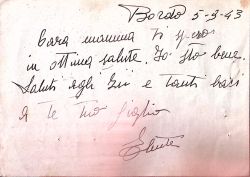 Bordo 5-9-43
Cara mamma ti spero
in ottima salute. Io sto bene.
Saluti agli zii e tanti baci
a te tuo figlio